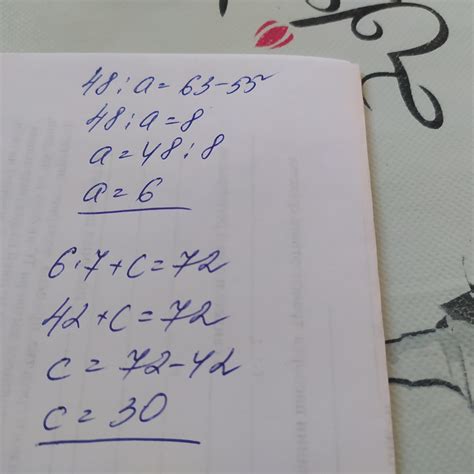 48:a=63-55
48:a=8
a=48:8
a=6
6·7+c=72
42+c=72
c=72-42
c=30